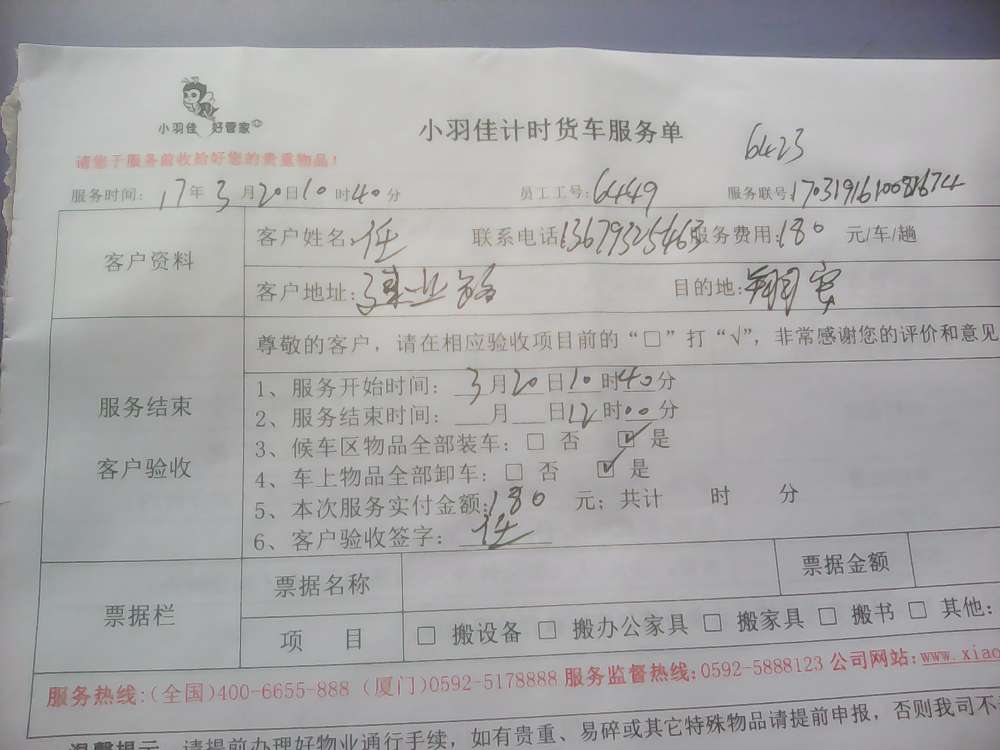 小羽佳 好管家
小羽佳计时货车服务单
6423
请您于服务前收拾好您的贵重物品！
服务时间：17年3月20日10时40分 员工工号：6449 服务联号：
客户资料
客户姓名：任 联系电话：13679325463 服务费用：180 元/车/趟
客户地址： 目的地：
服务结束
客户验收
尊敬的客户，请在相应验收项目前的“□”打“√”，非常感谢您的评价和意见
1、服务开始时间：3月20日10时40分
2、服务结束时间：___月___日12时00分
3、候车区物品全部装车：□ 否 ☑ 是
4、车上物品全部卸车：□ 否 ☑ 是
5、本次服务实付金额：180 元；共计 时 分
6、客户验收签字：任
票据栏
票据名称 票据金额
项 目 □ 搬设备 □ 搬办公家具 □ 搬家具 □ 搬书 □ 其他：
服务热线：(全国)400-6655-888 (厦门)0592-5178888 服务监督热线：0592-5888123 公司网站：www.xiao
温馨提示 请提前办理好物业通行手续，如有贵重、易碎或其它特殊物品请提前申报，否则我司不